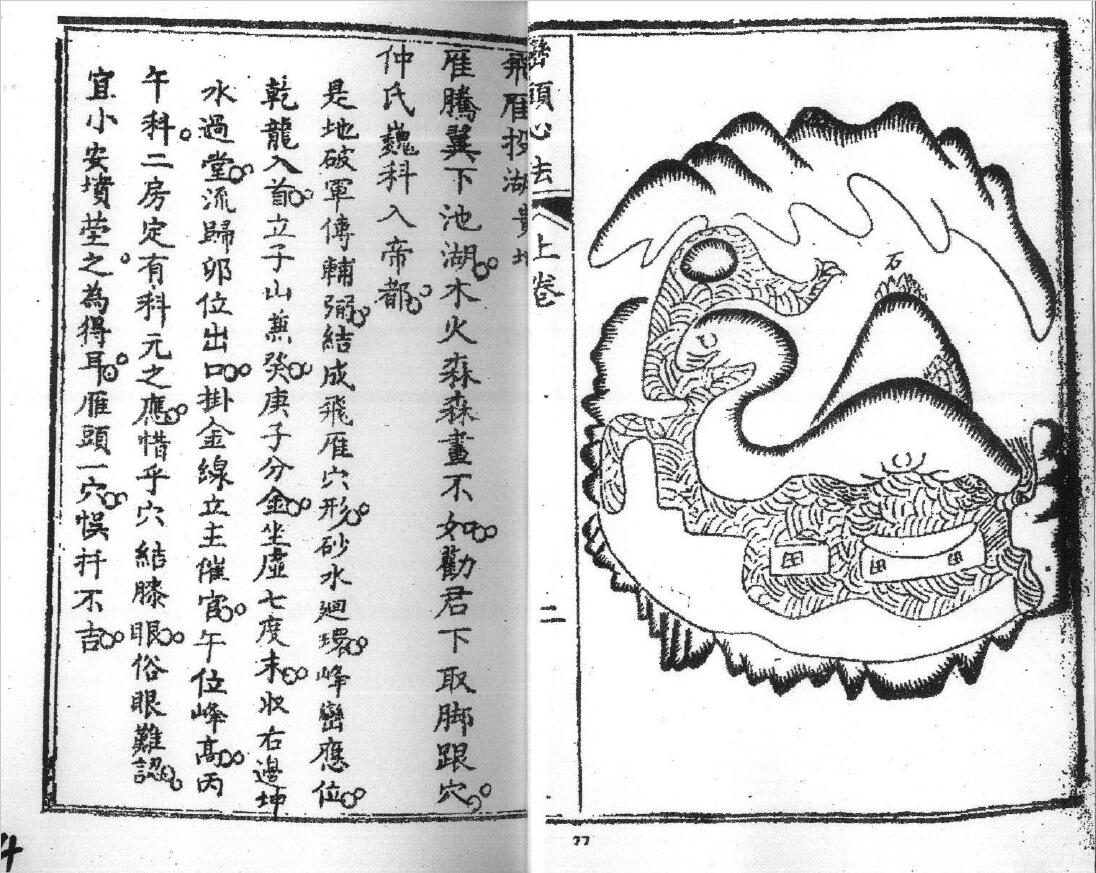 石
田
田
田
巒頭心法
上卷
二
27
飛雁投湖貴地
雁騰翼下池湖。木火森森畫不如。勸君下取脚跟穴。
仲氏巍科入帝都。
是地破軍傳輔弼。結成飛雁穴形。砂水廻環。峰巒應位。
乾龍入首。立子山兼癸。庚子分金。坐虛七度末。收右邊坤
水過堂。流歸卯位出口。掛金線立主催官。午位峰高。丙
午科。二房定有科元之應。惜乎穴結膝眼。俗眼難認。
宜小安墳塋之。為得耳。雁頭一穴。悞扦不吉。